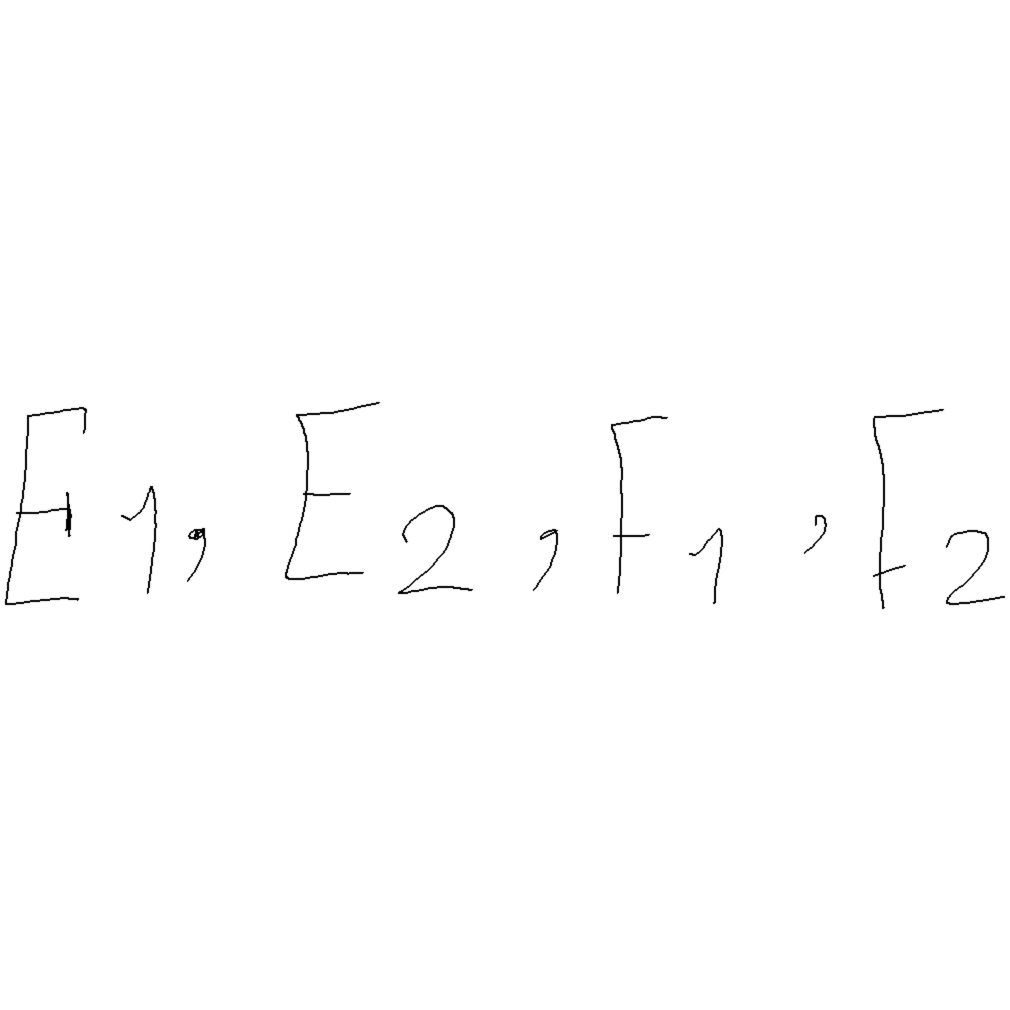 E1, E2, F1, F2